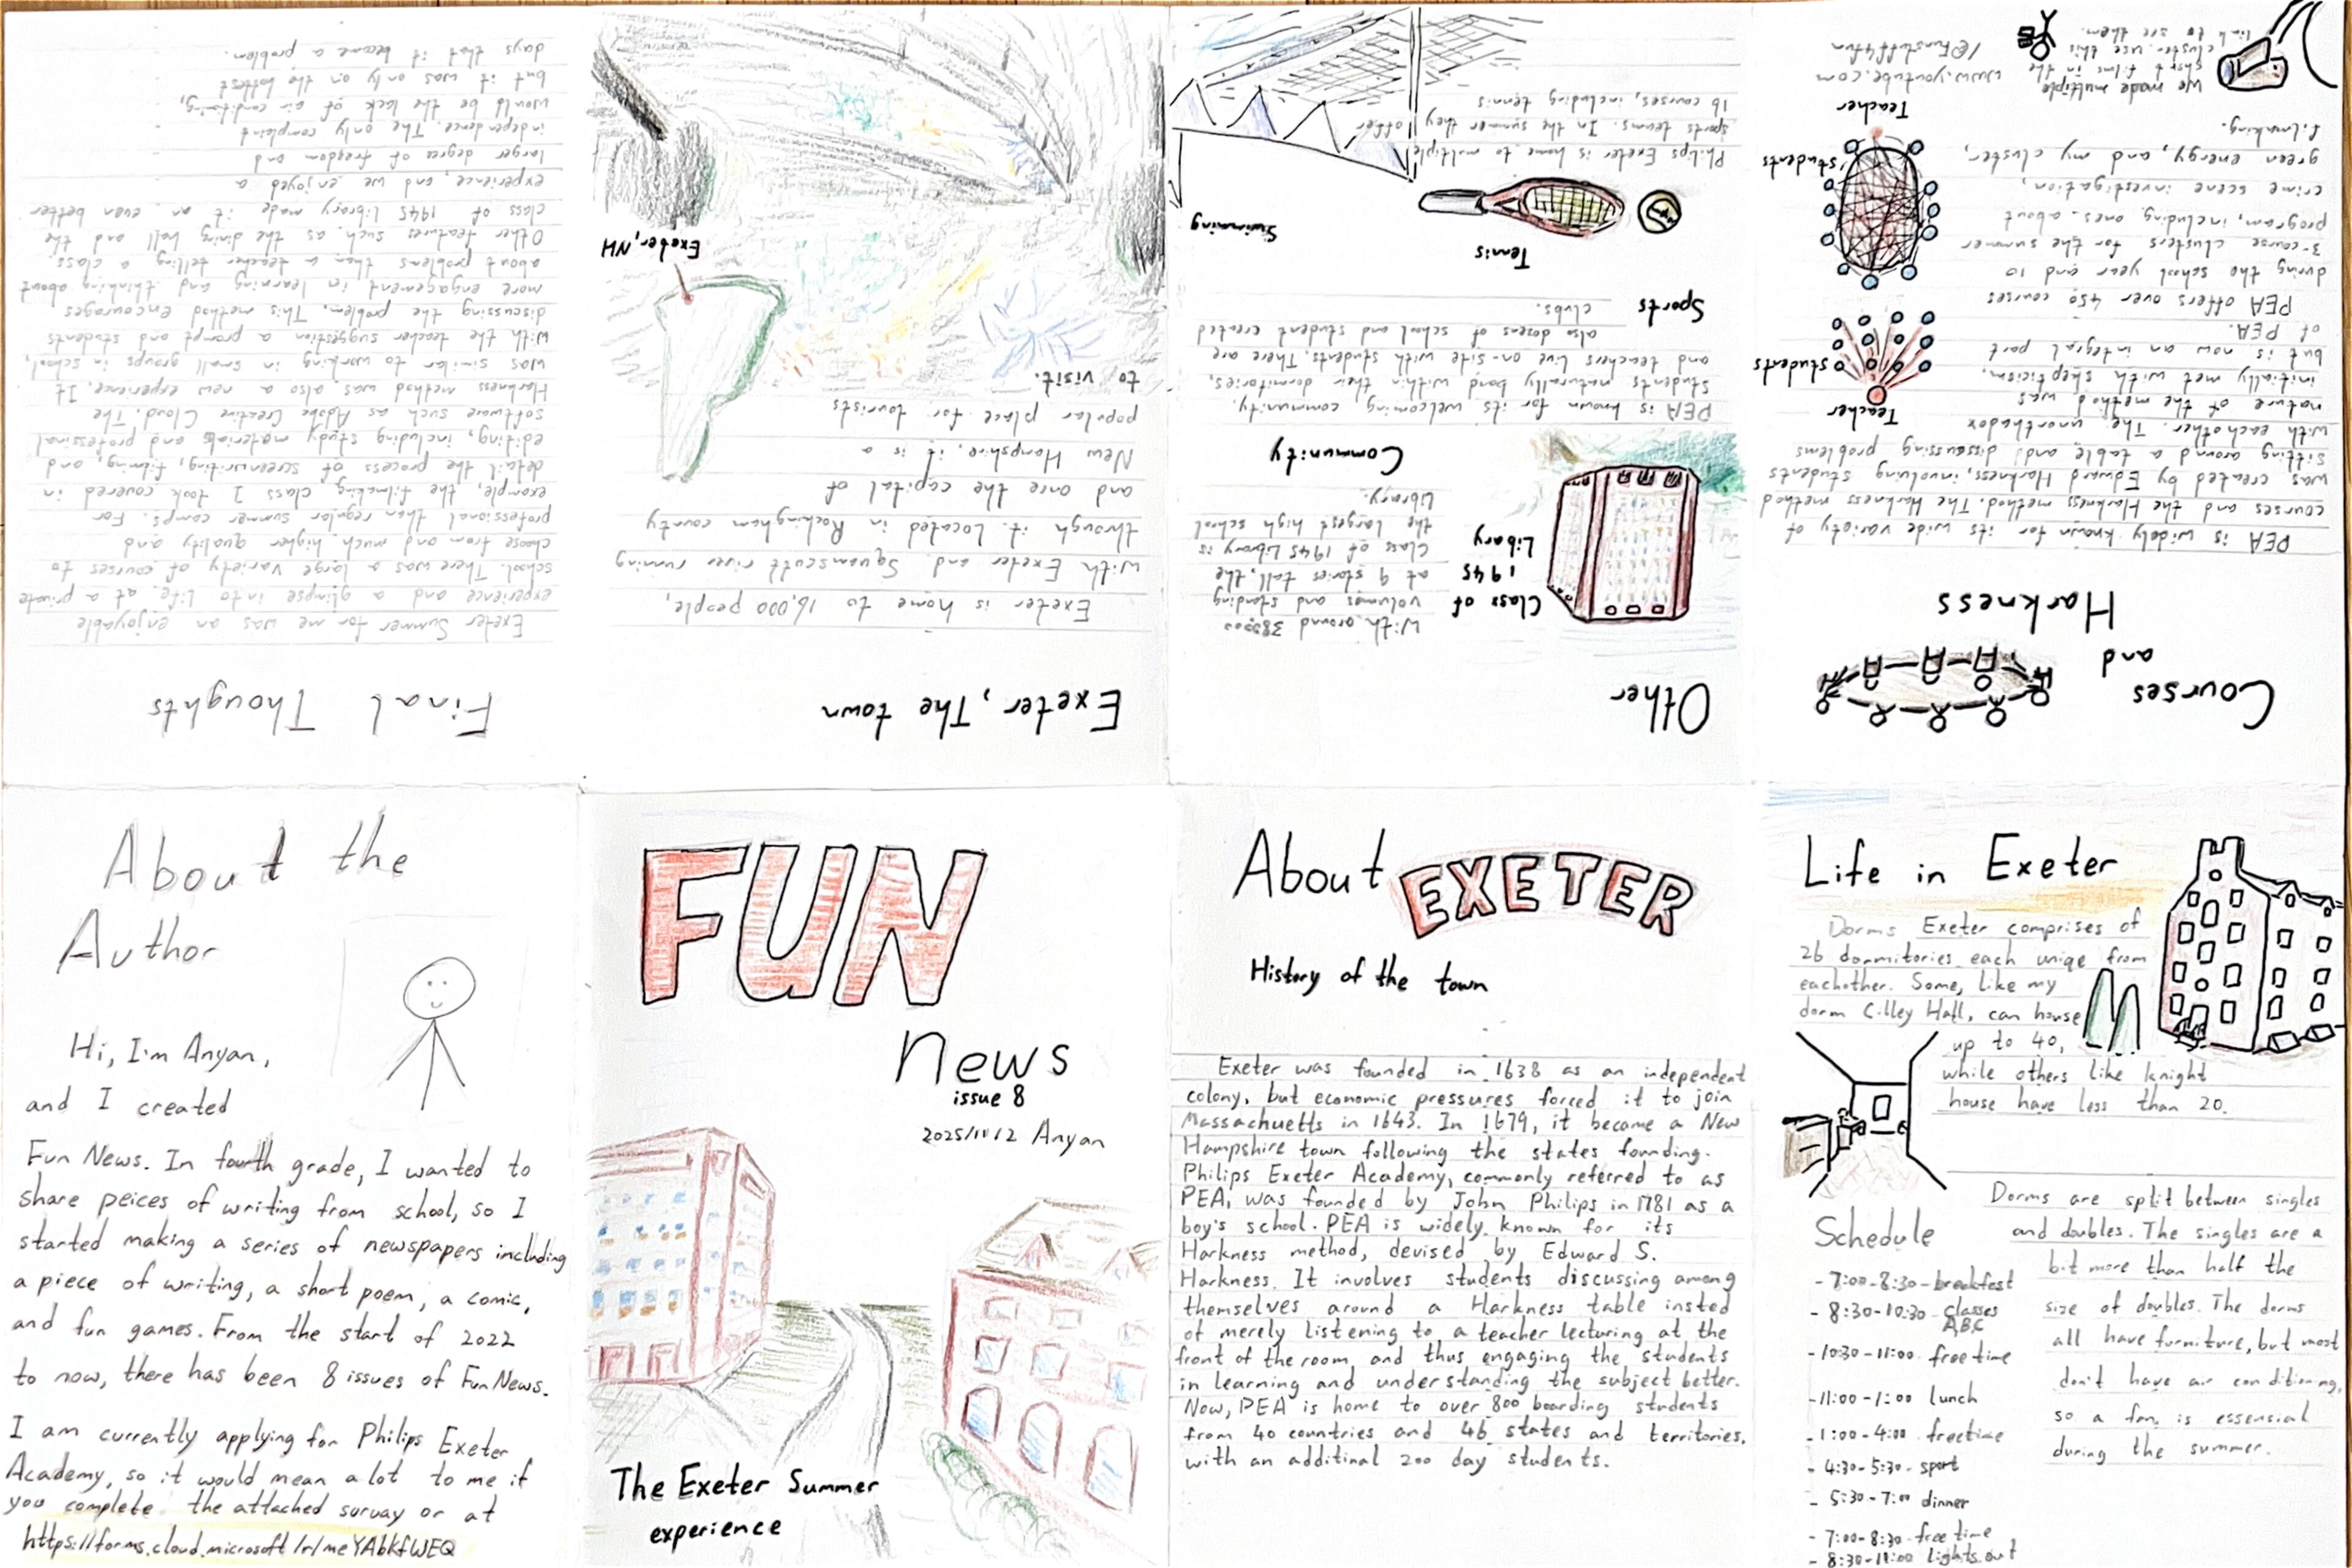 About the
Author
Hi, I'm Anyan,
and I created
Fun News. In fourth grade, I wanted to
share peices of writing from school, so I
started making a series of newspapers including
a piece of writing, a short poem, a comic,
and fun games. From the start of 2022
to now, there has been 8 issues of Fun News.
I am currently applying for Philips Exeter
Academy, so it would mean a lot to me if
you complete the attached survay or at
https://forms.cloud.microsoft/r/meYAbkfWEQ
FUN
News
issue 8
2025/11/12 Anyan
The Exeter Summer
experience
About EXETER
History of the town
Exeter was founded in 1638 as an independent
colony, but economic pressures forced it to join
Massachuetts in 1643. In 1679, it became a New
Hampshire town following the states founding.
Philips Exeter Academy, commonly referred to as
PEA, was founded by John Philips in 1781 as a
boy's school. PEA is widely known for its
Harkness method, devised by Edward S.
Harkness. It involves students discussing among
themselves around a Harkness table insted
of merely listening to a teacher lecturing at the
front of the room, and thus engaging the students
in learning and understanding the subject better.
Now, PEA is home to over 800 boarding students
from 40 countries and 46 states and territories,
with an additinal 200 day students.
Life in Exeter
Dorms Exeter comprises of
26 dormitories each uniqe from
eachother. Some, like my
dorm Cilley Hall, can house
up to 40,
while others like knight
house have less than 20.
Dorms are split between singles
and doubles. The singles are a
bit more than half the
size of doubles. The dorms
all have furniture, but most
don't have air conditioning,
so a fan is essensial
during the summer.
Schedule
- 7:00-8:30 - breakfest
- 8:30-10:30 - classes
ABC
- 10:30-11:00 - free time
- 11:00-1:00 lunch
- 1:00-4:00 freetime
- 4:30-5:30 - sport
- 5:30-7:00 dinner
- 7:00-8:30 - free time
- 8:30-11:00 Lights out
Courses
and
Harkness
PEA is widely known for its wide varioty of
courses and the Harkness method. The Harkness method
was created by Edward Harkness, involving students
sitting around a table and discussing problems
with eachother. The unorthadox
nature of the method was
initially met with skepticism,
but is now an integral part
of PEA.
Teacher
students
PEA offers over 450 courses
during the school year and 10
3-course clusters for the summer
program, including ones about
crime scene investigation,
green energy, and my cluster,
filmaking.
students
Teacher
We made multiple
short films in the
cluster. use this
link to see them.
www.youtube.com
/@Funstuff4fun
Other
Class of
1945
Libary
With around 380,000
volumes and standing
at 9 stories tall, the
Class of 1945 Library is
the largest high school
Library.
Community
PEA is known for its welcoming community,
students naturally bond within their dormitories,
and teachers live on-site with students. There are
also dozens of school and student created
clubs.
Sports
Tennis
Swimming
Philips Exeter is home to multiple
sports teams. In the summer they offer
16 courses, including tennis
Exeter, The town
Exeter is home to 16,000 people,
with Exeter and Squamscutt river running
through it. Located in Rockingham county
and once the capital of
New Hampshire, it is a
popular place for tourists
to visit.
Exeter, NH
Final Thoughts
Exeter Summer for me was an enjoyable
experience and a glimpse into life at a private
school. There was a large variety of courses to
choose from and much higher quality and
professional than regular summer camps. For
example, the filmaking class I took covered in
detail the process of screenwriting, filming, and
editing, including study materials and professinal
software such as Adobe Creative Cloud. The
Harkness method was also a new experience. It
was similar to working in small groups in school,
with the teacher suggestion a prompt and students
discussing the problem. This method encourages
more engagement in learning and thinking about
about problems than a teacher telling a class.
Other features such as the dining hall and the
class of 1945 library made it an even better
experience, and we enjoyed a
larger degree of freedom and
independence. The only complaint
would be the lack of air conditoing,
but it was only on the hottest
days that it became a problem.